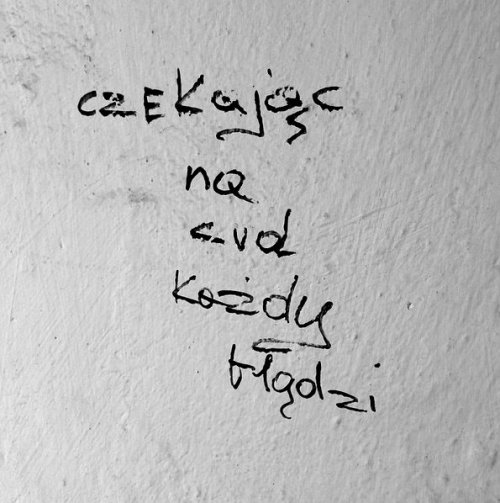 czEkając
na
cud
każdy
błądzi